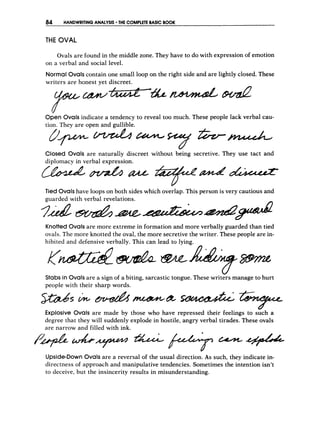 84 HANDWRITING ANALYSIS • THE COMPLETE BASIC BOOK
THE OVAL
Ovals are found in the middle zone. They have to do with expression of emotion
on a verbal and social level.
Normal Ovals contain one small loop on the right side and are lightly closed. These
writers are honest yet discreet.
You can trust the normal oval
Open Ovals indicate a tendency to reveal too much. These people lack verbal cau-
tion. They are open and gullible.
Open ovals can say too much
Closed Ovals are naturally discreet without being secretive. They use tact and
diplomacy in verbal expression.
Closed ovals are tactful and discreet
Tied Ovals have loops on both sides which overlap. This person is very cautious and
guarded with verbal revelations.
Tied ovals are cautious and guard
Knotted Ovals are more extreme in formation and more verbally guarded than tied
ovals. The more knotted the oval, the more secretive the writer. These people are in-
hibited and defensive verbally. This can lead to lying.
Knotted ovals are hiding some
Stabs in Ovals are a sign of a biting, sarcastic tongue. These writers manage to hurt
people with their sharp words.
Stabs in ovals mean a sarcastic tongue
Explosive Ovals are made by those who have repressed their feelings to such a
degree that they will suddenly explode in hostile, angry verbal tirades. These ovals
are narrow and filled with ink.
People who repress their feelings can explode
Upside-Down Ovals are a reversal of the usual direction. As such, they indicate in-
directness of approach and manipulative tendencies. Sometimes the intention isn't
to deceive, but the insincerity results in misunderstanding.